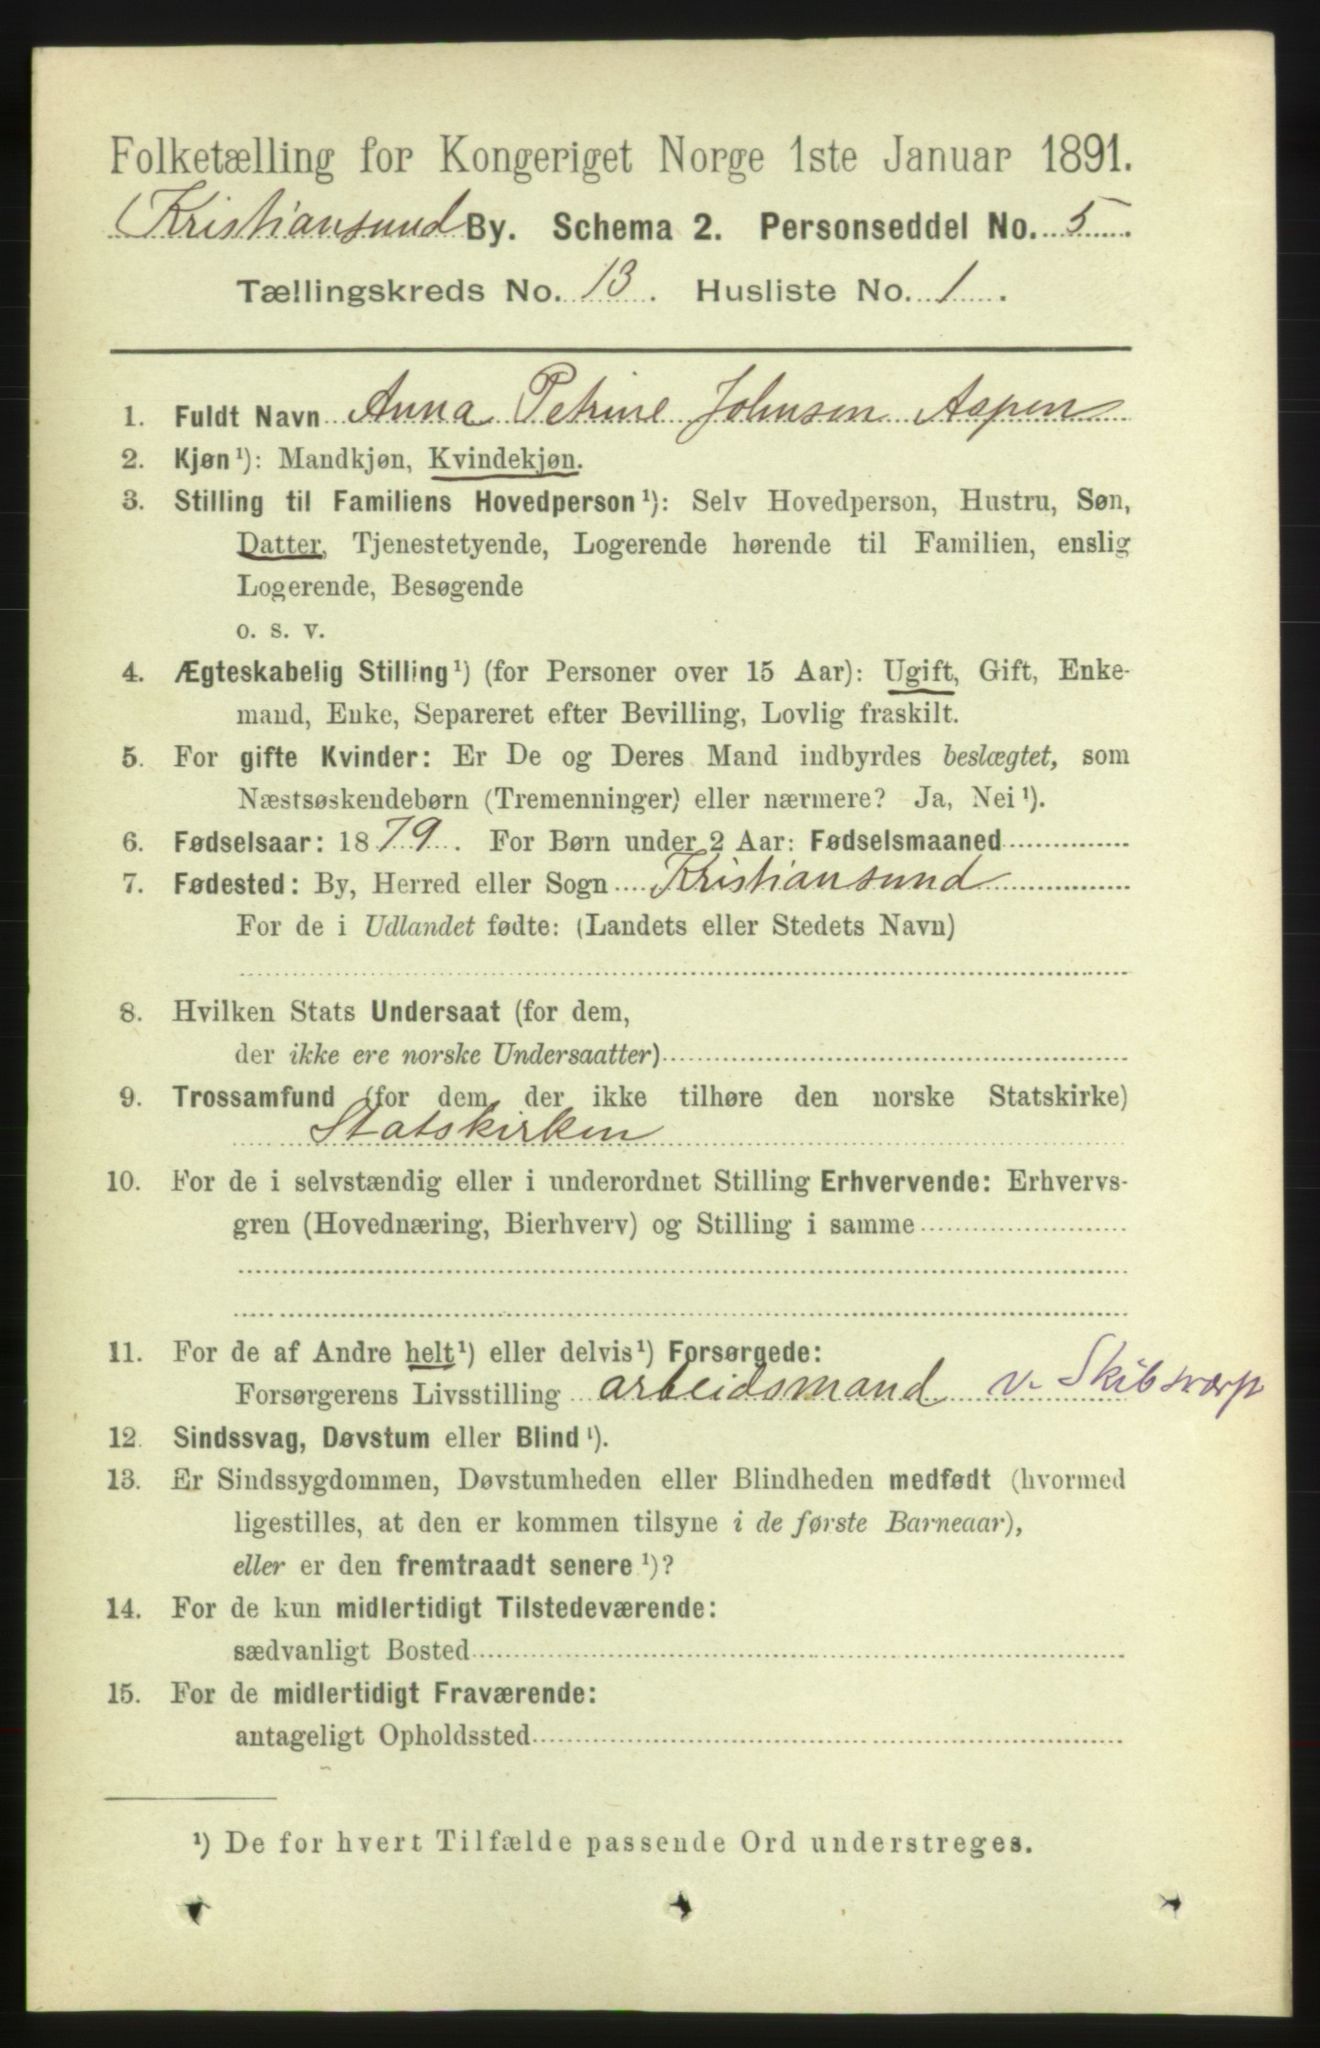 Folketælling for Kongeriget Norge 1ste Januar 1891.
Kristiansund By. Schema 2. Personseddel No. 5
Tællingskreds No. 13. Husliste No. 1.
1. Fuldt Navn Anna Petrine Johnsen Aspen
2. Kjøn¹): Mandkjøn, Kvindekjøn.
3. Stilling til Familiens Hovedperson¹): Selv Hovedperson, Hustru, Søn,
Datter, Tjenestetyende, Logerende hørende til Familien, enslig
Logerende, Besøgende
o. s. v.
4. Ægteskabelig Stilling¹) (for Personer over 15 Aar): Ugift, Gift, Enke-
mand, Enke, Separeret efter Bevilling, Lovlig fraskilt.
5. For gifte Kvinder: Er De og Deres Mand indbyrdes beslægtet, som
Næstsøskendebørn (Tremenninger) eller nærmere? Ja, Nei¹).
6. Fødselsaar: 1879. For Børn under 2 Aar: Fødselsmaaned
7. Fødested: By, Herred eller Sogn Kristiansund
For de i Udlandet fødte: (Landets eller Stedets Navn)
8. Hvilken Stats Undersaat (for dem,
der ikke ere norske Undersaatter)
9. Trossamfund (for dem, der ikke tilhøre den norske Statskirke)
Statskirken
10. For de i selvstændig eller i underordnet Stilling Erhvervende: Erhvervs-
gren (Hovednæring, Bierhverv) og Stilling i samme
11. For de af Andre helt¹) eller delvis¹) Forsørgede:
Forsørgerens Livsstilling arbeidsmand v. Skibsværft
12. Sindssvag, Døvstum eller Blind¹).
13. Er Sindssygdommen, Døvstumheden eller Blindheden medfødt (hvormed
ligestilles, at den er kommen tilsyne i de første Barneaar),
eller er den fremtraadt senere¹)?
14. For de kun midlertidigt Tilstedeværende:
sædvanligt Bosted
15. For de midlertidigt Fraværende:
antageligt Opholdssted
¹) De for hvert Tilfælde passende Ord understreges.